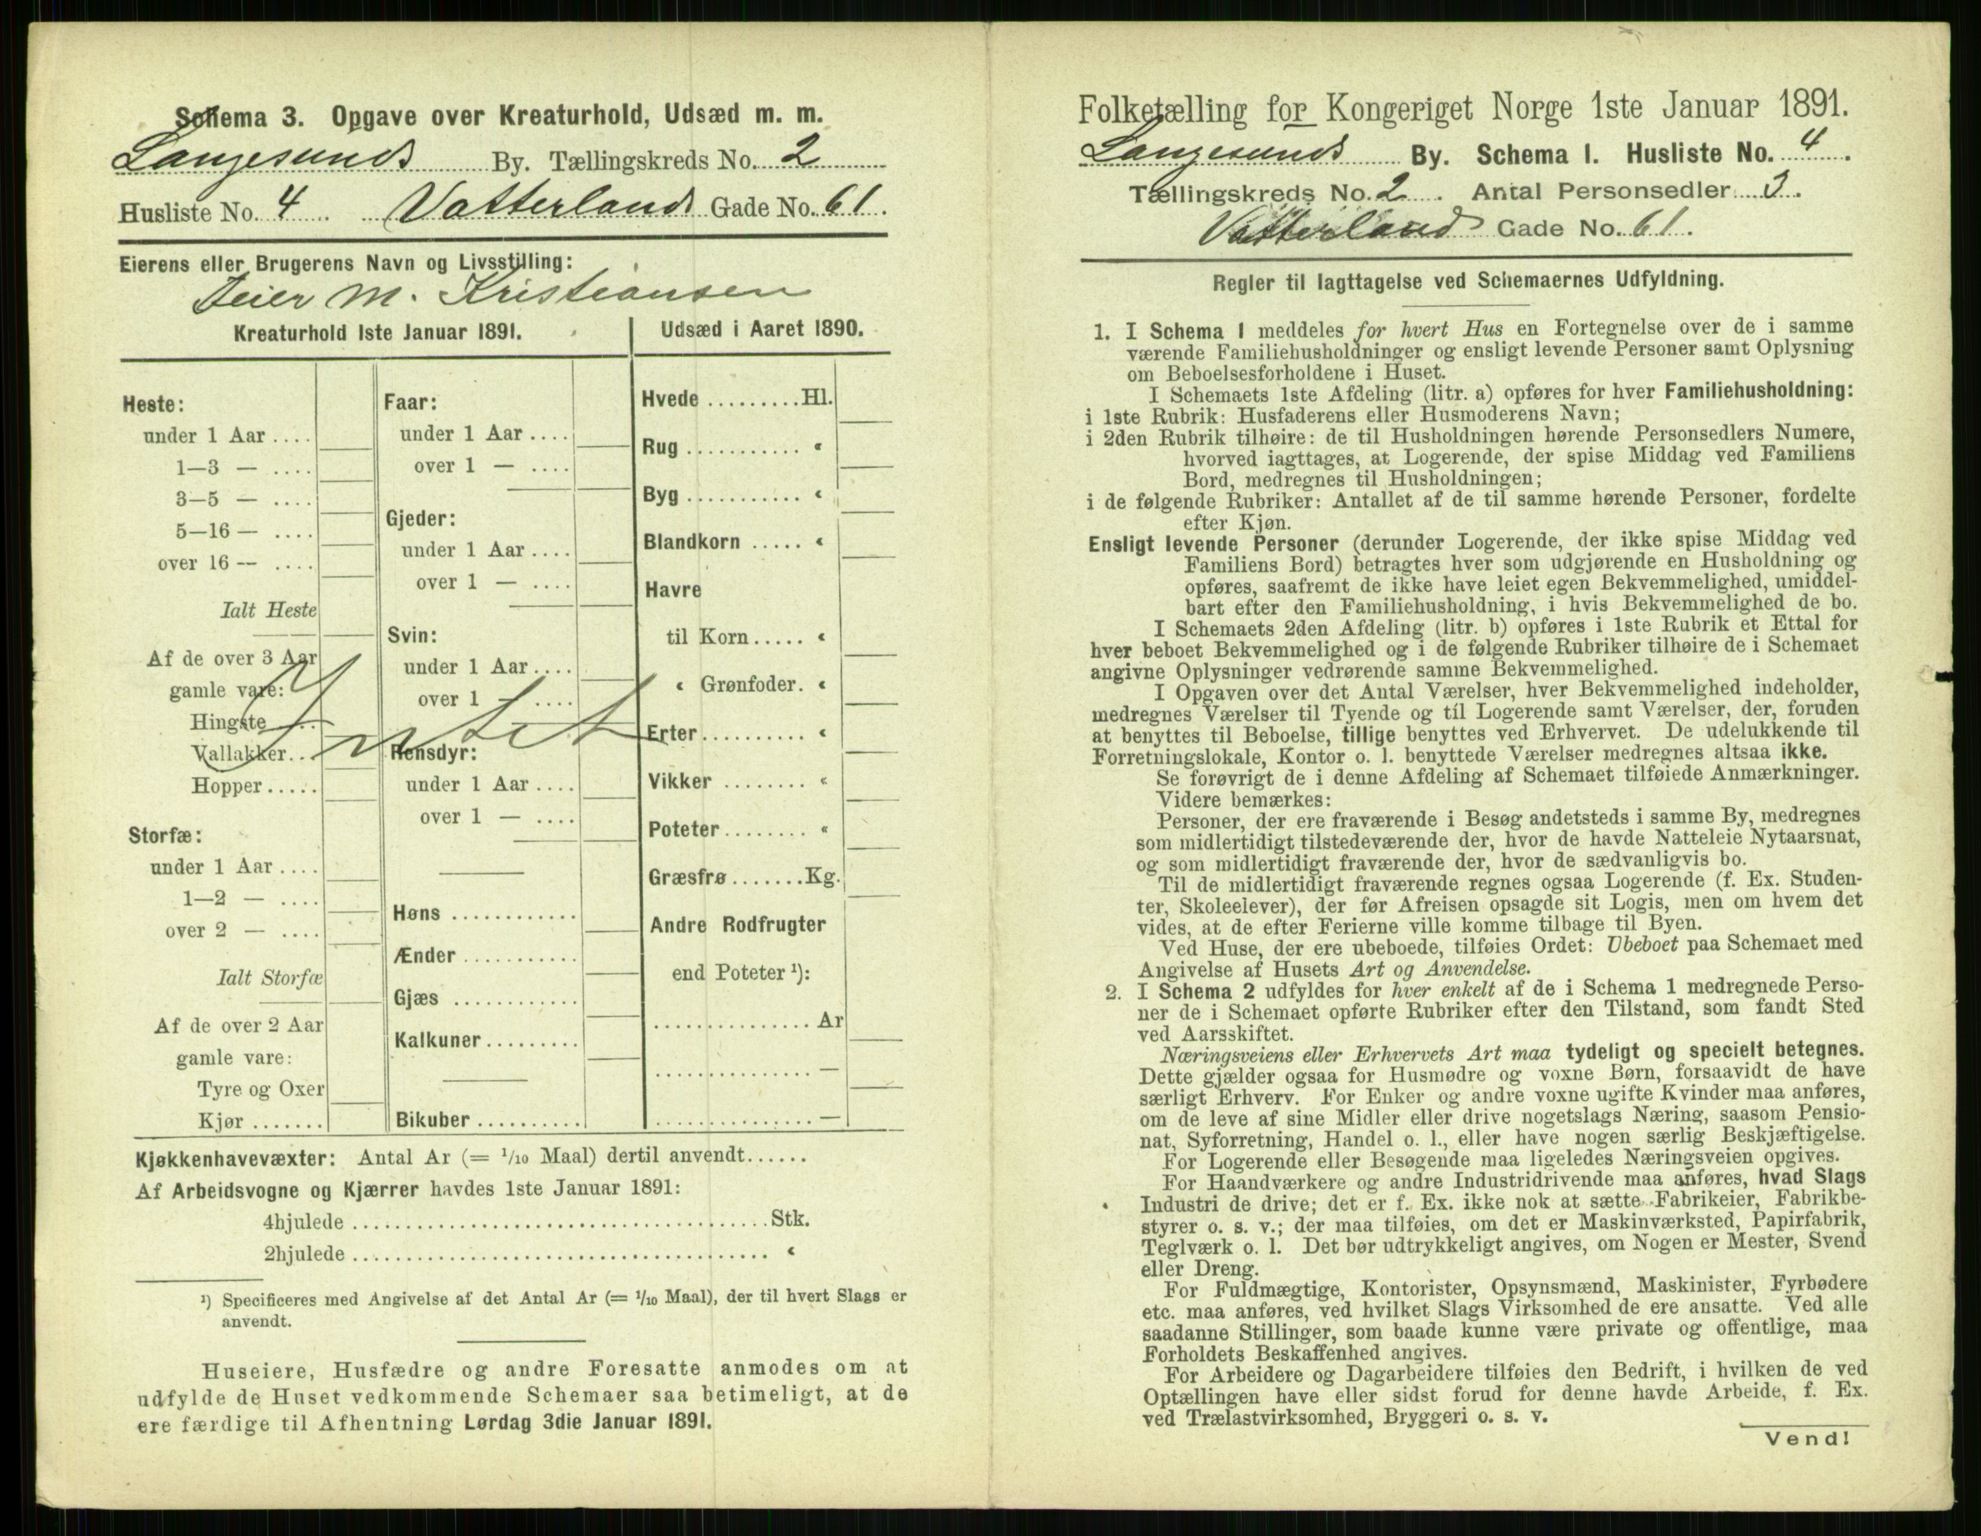 Schema 3. Opgave over Kreaturhold, Udsæd m. m.
Langesunds By. Tællingskreds No. 2
Husliste No. 4 Vatterlands Gade No. 61.
Eierens eller Brugerens Navn og Livsstilling:
M. Kristiansen
Kreaturhold 1ste Januar 1891.
Heste:
under 1 Aar ....
1—3 — ....
3—5 — ....
5—16 — ....
over 16 — ....
Ialt Heste
Af de over 3 Aar
gamle vare:
Hingste ....
Vallakker ...
Hopper .....
Storfæ:
under 1 Aar ....
1—2 — ....
over 2 — ....
Ialt Storfæ
Af de over 2 Aar
gamle vare:
Tyre og Oxer
Kjør .......
Intet
Faar:
under 1 Aar ....
over 1 — ....
Gjeder:
under 1 Aar ....
over 1 — ....
Svin:
under 1 Aar ....
over 1 — ....
Rensdyr:
under 1 Aar ....
over 1 — ....
Høns ............
Ænder ...........
Gjæs ............
Kalkuner .........
Bikuber ..........
Udsæd i Aaret 1890.
Hvede ......... Hl.
Rug ........... «
Byg ........... «
Blandkorn ..... «
Havre
til Korn ..... «
« Grønfoder. «
Erter .......... «
Vikker ........ «
Poteter ........ «
Græsfrø ....... Kg.
Andre Rodfrugter
end Poteter ¹):
............... Ar
............... —
............... —
Kjøkkenhavevæxter: Antal Ar (= 1/10 Maal) dertil anvendt ......
Af Arbeidsvogne og Kjærrer havdes 1ste Januar 1891:
4hjulede ..................................... Stk.
2hjulede ..................................... «
¹) Specificeres med Angivelse af det Antal Ar (= 1/10 Maal), der til hvert Slags er
anvendt.
Huseiere, Husfædre og andre Foresatte anmodes om at
udfylde de Huset vedkommende Schemaer saa betimeligt, at de
ere færdige til Afhentning Lørdag 3die Januar 1891.
Folketælling for Kongeriget Norge 1ste Januar 1891.
Langesunds By. Schema 1. Husliste No. 4.
Tællingskreds No. 2. Antal Personsedler 3.
Vatterland Gade No. 61.
Regler til Iagttagelse ved Schemaernes Udfyldning.
1. I Schema 1 meddeles for hvert Hus en Fortegnelse over de i samme
værende Familiehusholdninger og ensligt levende Personer samt Oplysning
om Beboelsesforholdene i Huset.
I Schemaets 1ste Afdeling (litr. a) opføres for hver Familiehusholdning:
i 1ste Rubrik: Husfaderens eller Husmoderens Navn;
i 2den Rubrik tilhøire: de til Husholdningen hørende Personsedlers Numere,
hvorved iagttages, at Logerende, der spise Middag ved Familiens
Bord, medregnes til Husholdningen;
i de følgende Rubriker: Antallet af de til samme hørende Personer, fordelte
efter Kjøn.
Ensligt levende Personer (derunder Logerende, der ikke spise Middag ved
Familiens Bord) betragtes hver som udgjørende en Husholdning og
opføres, saafremt de ikke have leiet egen Bekvemmelighed, umiddel-
bart efter den Familiehusholdning, i hvis Bekvemmelighed de bo.
I Schemaets 2den Afdeling (litr. b) opføres i 1ste Rubrik et Ettal for
hver beboet Bekvemmelighed og i de følgende Rubriker tilhøire de i Schemaet
angivne Oplysninger vedrørende samme Bekvemmelighed.
I Opgaven over det Antal Værelser, hver Bekvemmelighed indeholder,
medregnes Værelser til Tyende og til Logerende samt Værelser, der, foruden
at benyttes til Beboelse, tillige benyttes ved Erhvervet. De udelukkende til
Forretningslokale, Kontor o. l. benyttede Værelser medregnes altsaa ikke.
Se forøvrigt de i denne Afdeling af Schemaet tilføiede Anmærkninger.
Videre bemærkes:
Personer, der ere fraværende i Besøg andetsteds i samme By, medregnes
som midlertidigt tilstedeværende der, hvor de havde Natteleie Nytaarsnat,
og som midlertidigt fraværende der, hvor de sædvanligvis bo.
Til de midlertidigt fraværende regnes ogsaa Logerende (f. Ex. Studen-
ter, Skoleelever), der før Afreisen opsagde sit Logis, men om hvem det
vides, at de efter Ferierne ville komme tilbage til Byen.
Ved Huse, der ere ubeboede, tilføies Ordet: Ubeboet paa Schemaet med
Angivelse af Husets Art og Anvendelse.
2. I Schema 2 udfyldes for hver enkelt af de i Schema 1 medregnede Perso-
ner de i Schemaet opførte Rubriker efter den Tilstand, som fandt Sted
ved Aarsskiftet.
Næringsveiens eller Erhvervets Art maa tydeligt og specielt betegnes.
Dette gjælder ogsaa for Husmødre og voxne Børn, forsaavidt de have
særligt Erhverv. For Enker og andre voxne ugifte Kvinder maa anføres,
om de leve af sine Midler eller drive nogetslags Næring, saasom Pensio-
nat, Syforretning, Handel o. l., eller have nogen særlig Beskjæftigelse.
For Logerende eller Besøgende maa ligeledes Næringsveien opgives.
For Haandværkere og andre Industridrivende maa anføres, hvad Slags
Industri de drive; det er f. Ex. ikke nok at sætte Fabrikeier, Fabrikbe-
styrer o. s. v.; der maa tilføies, om det er Maskinværksted, Papirfabrik,
Teglværk o. l. Det bør udtrykkeligt angives, om Nogen er Mester, Svend
eller Dreng.
For Fuldmægtige, Kontorister, Opsynsmænd, Maskinister, Fyrbødere
etc. maa anføres, ved hvilket Slags Virksomhed de ere ansatte. Ved alle
saadanne Stillinger, som baade kunne være private og offentlige, maa
Forholdets Beskaffenhed angives.
For Arbeidere og Dagarbeidere tilføies den Bedrift, i hvilken de ved
Optællingen have eller sidst forud for denne havde Arbeide, f. Ex.
ved Trælastvirksomhed, Bryggeri o. s. v.
Vend!